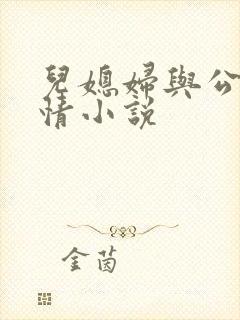 兒媳婦與公
情小說
金茵